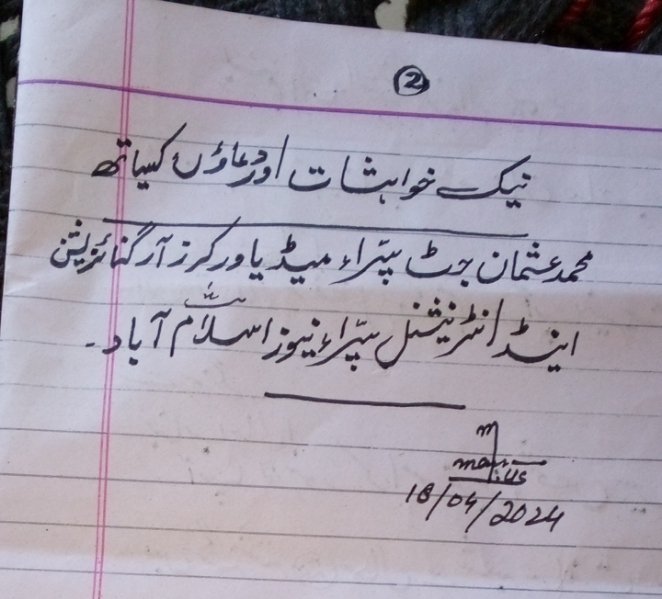 ②
نیک خواہشات اور دعاؤں کیساتھ
محمد عثمان جٹ سپراء میڈیا ورکرز آرگنائزیشن
اینڈ انٹرنیشنل سپراء نیوز اسلام آباد۔
18/04/2024